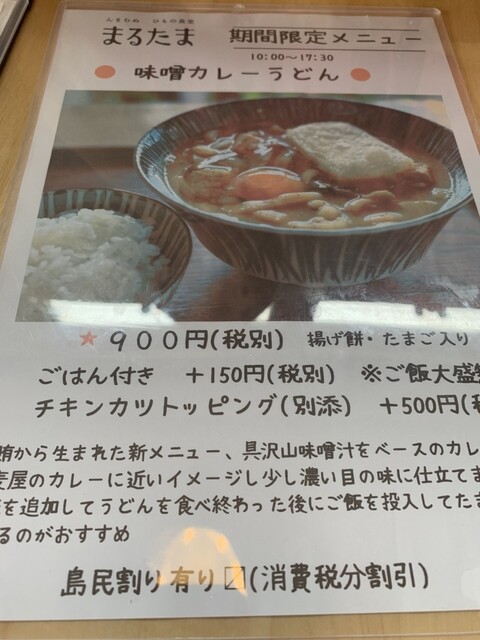 まるたま 期間限定メニュー
10:00～17:30
味噌カレーうどん
★９００円(税別) 揚げ餅・たまご入り
ごはん付き ＋150円(税別) ※ご飯大盛
チキンカツトッピング(別添) ＋500円(税
から生まれた新メニュー、具沢山味噌汁をベースのカレ
屋のカレーに近いイメージし少し濃い目の味に仕立てま
を追加してうどんを食べ終わった後にご飯を投入してたま
るのがおすすめ
島民割り有り〼(消費税分割引)